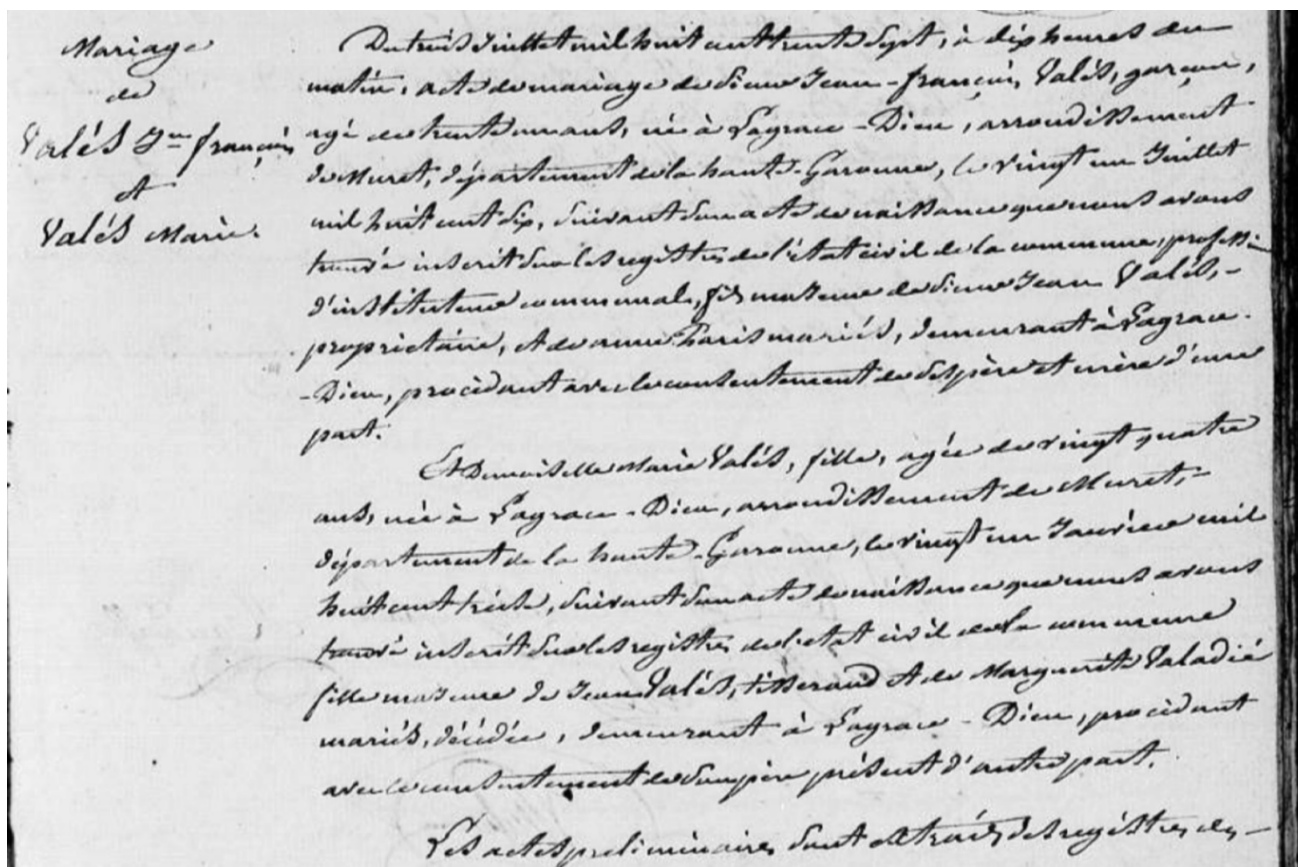 Mariage
de
Valés Jn françois
et
Valés Marie.
Du trois Juillet mil huit cent trente Sept, à dix heures du
matin, acte de mariage de Sieur Jean-françois Valés, garçon,
agé de trente ans, né à Lagrace-Dieu, arrondissement
de Muret, département de la haute-Garonne, le vingt un Juillet
mil huit cent dix, Suivant Son acte de naissance que nous avons
trouvé inscrit Sur les registres de l'état civil de la commune, professi
d'instituteur communal, fils majeur de Sieur Jean Valés,-
propriétaire, et de anne Paris mariés, demeurant à Lagrace-
-Dieu, procédant avec le consentement de Ses père et mère d'une
part.
Et Demoiselle Marie Valés, fille, agée de vingt quatre
ans, née à Lagrace-Dieu, arrondissement de Muret,-
département de la haute-Garonne, le vingt un Janvier mil
huit cent treize, Suivant Son acte de naissance que nous avons
trouvé inscrit Sur les registres de l'état civil de la commune
fille majeure de Jean Valés, tisserand et de Marguerite Valadié
mariés, décédée, demeurant à Lagrace-Dieu, procédant
avec le consentement de Son père présent d'autre part.
Les actes préliminaires Sont extraits des registres des-